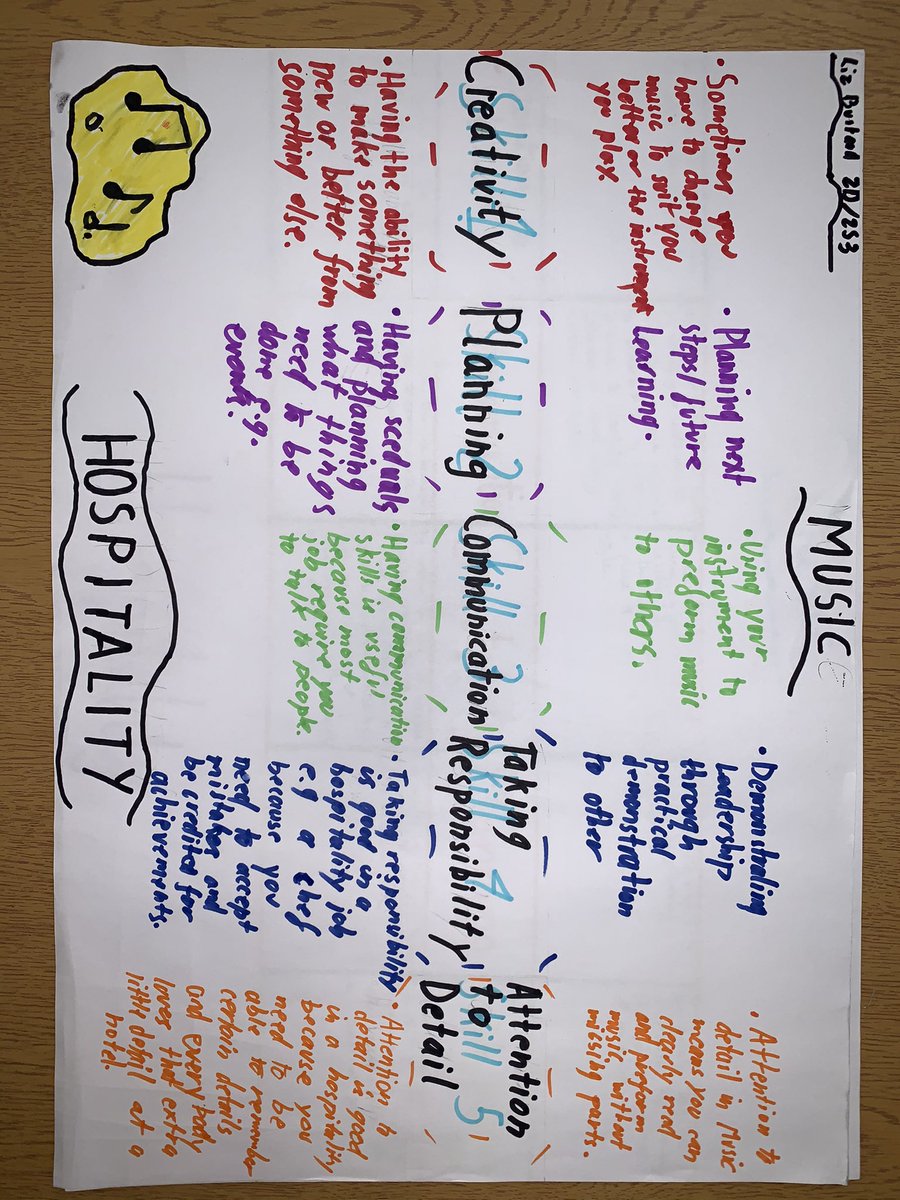 Liz 2D/2S3
MUSIC
• Sometimes you
have to change
music to suit you
better or the instrument
you play
• Planning next
steps/future
learning.
• Using your
instrument to
preform music
to others.
• Demonstrating
Leadership
through
practical
demonstration
to other
• Attention to
detail in Music
means you can
clearly read
and preform
music without
missing parts.
Skill 1
Creativity
Skill 2
Planning
Skill 3
Communication
Skill 4
Taking
Responsibility
Skill 5
Attention
to
Detail
• Having the ability
to make something
new or better from
something else.
• Having sceduals
and planning
what things
need to be
done e.g.
events.
• Having communication
skills is usefil
because most
job require you
to talk to people.
• Taking responsibility
is good in a
hospitility job
e.g a chef
because you
need to accept
mistakes and
be credited for
achievements.
• Attention to
detail is good
in a hospitility
because you
need to be
able to remember
certain details
and every body
loves that extra
little detail at a
hotel.
HOSPITALITY